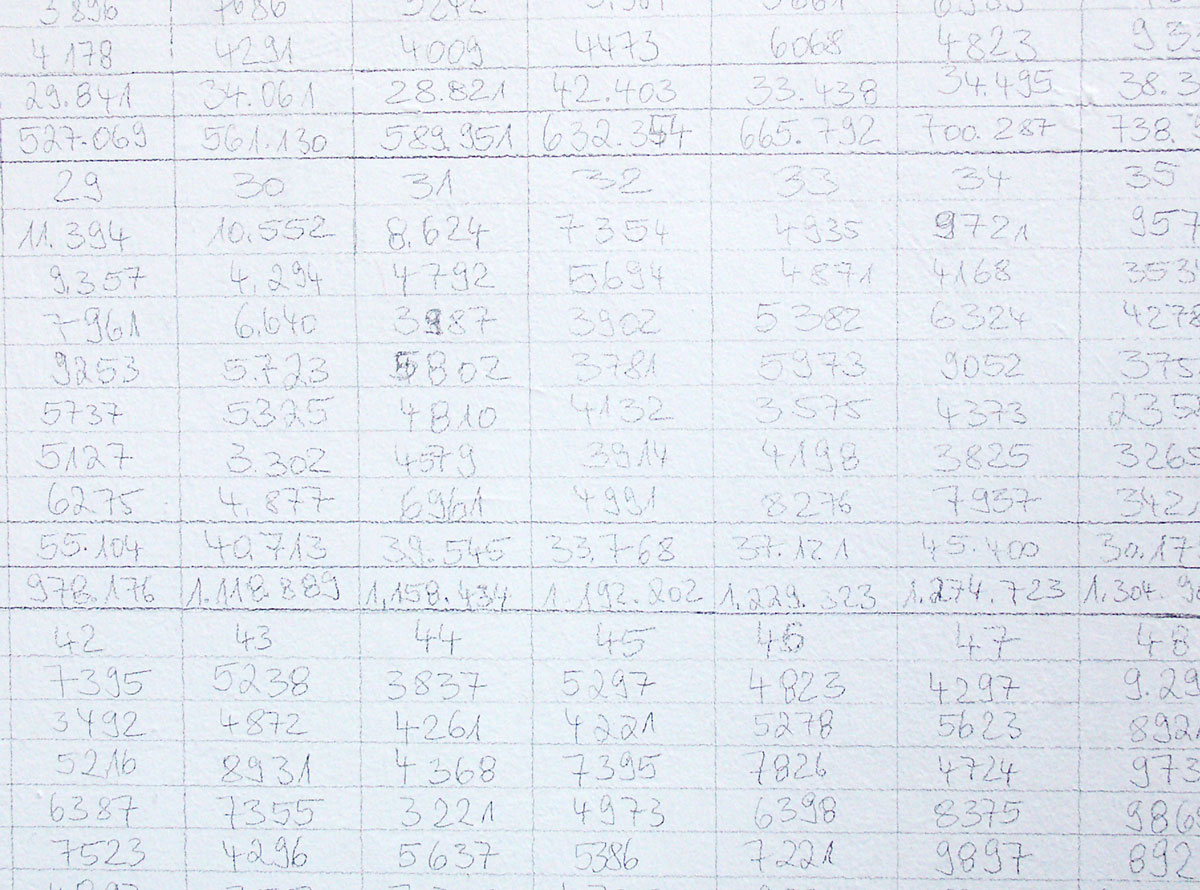 3896 7686
4178 4291 4009 4473 6068 4823 93
29.841 34.061 28.821 42.403 33.438 34.495 38.3
527.069 561.130 589.951 632.354 665.792 700.287 738.
29 30 31 32 33 34 35
11.394 10.552 8.624 7354 4935 9721 957
9.357 4.294 4792 5694 4871 4168 353
7961 6.640 3987 3902 5382 6324 4278
9253 5.723 5802 3781 5973 9052 375
5737 5325 4810 4132 3575 4373 235
5127 3.302 4579 3914 4198 3825 3265
6275 4.877 6961 4991 8276 7937 342
55.104 40.713 39.545 33.768 37.121 45.400 30.17
978.176 1.118.889 1.158.434 1.192.202 1.229.323 1.274.723 1.304.9
42 43 44 45 46 47 48
7395 5238 3837 5297 4823 4297 9.29
3492 4872 4261 4221 5278 5623 892
5216 8931 4368 7395 7826 4724 973
6387 7355 3221 4973 6398 8375 986
7523 4296 5637 5386 7221 9897 892